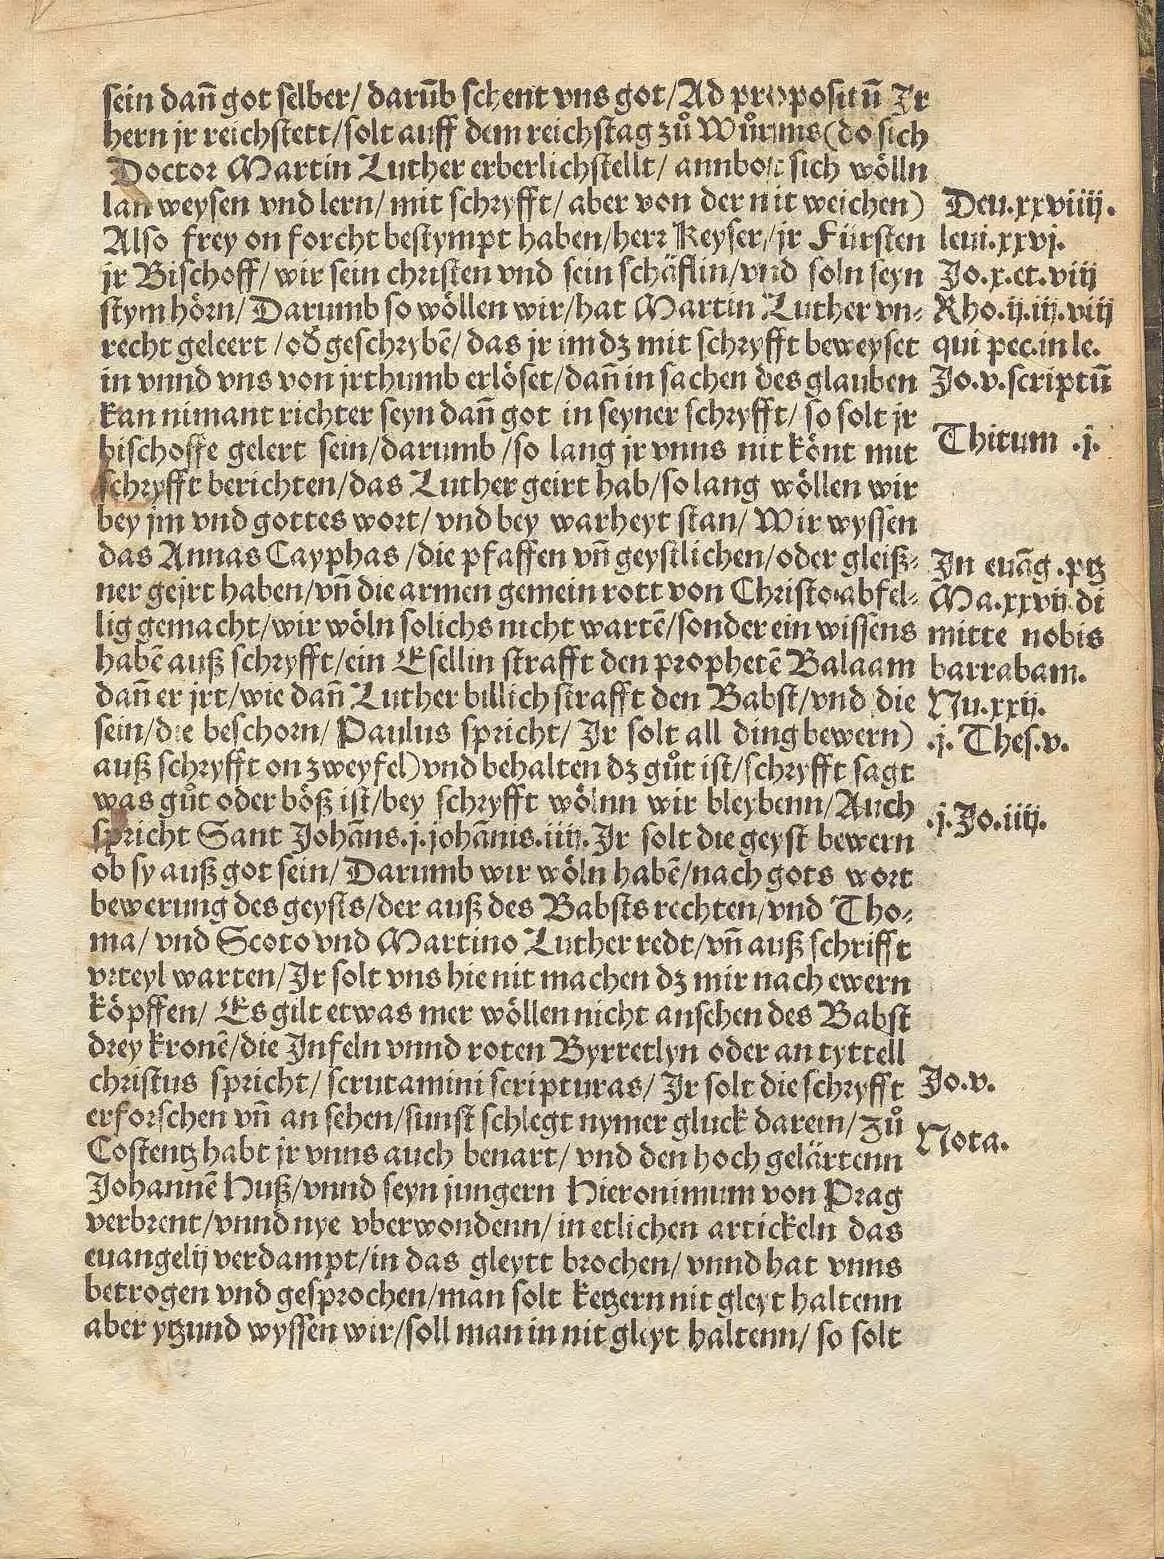 sein dañ got selber/ darūb schent vns got/Ad propositū Ir
hern jr reichstett/solt auff dem reichstag zů Wůrms(do sich
Doctor Martin Luther erberlichstellt/ annbot sich wölln
lan weysen vnd lern/ mit schryfft/ aber von der nit weichen)
Deu.xxviiij.
Also frey on forcht bestympt haben/herr Keyser/jr Fürsten
leui.xxvj.
jr Bischoff/wir sein christen vnd sein schäflin/vnd soln seyn
Jo.x.et.viij
stym hörn/ Darumb so wöllen wir/hat Martin Luther vn⸗
Rho.ij.iij.viij
recht geleert /oď geschrybē/ das jr im dz mit schryfft beweyset
qui pec.in le.
in vnnd vns von jrthumb erlöset/dañ in sachen des glauben
Jo.v.scriptū
kan nimant richter seyn dañ got in seyner schryfft/ so solt jr
bischoffe gelert sein/darumb /so lang jr vnns nit könt mit
Thitum .j.
schryfft berichten/das Luther geirt hab/so lang wöllen wir
bey jm vnd gottes wort/ vnd bey warheyt stan/ Wir wyssen
das Annas Cayphas /die pfaffen vñ geystlichen/oder gleiß⸗
In euāg.ptz
ner gejrt haben/vñ die armen gemein rott von Christo abfel⸗
Ma.xxvij.di
lig gemacht/wir wöln solichs nicht wartē/sonder ein wissens
mitte nobis
habē auß schryfft/ein Esellin strafft den prophetē Balaam
barrabam.
dañ er jrt/wie dañ Luther billich strafft den Babst/vnd die
Nu.xxij.
sein/die beschorn/ Paulus spricht/ Jr solt all ding bewern)
.j. Thes.v.
auß schryfft on zweyfel)vnd behalten dz gůt ist/schryfft sagt
was gůt oder böß ist/bey schryfft wölnn wir bleybenn/Auch
.j.Jo.iiij.
spricht Sant Johāns.j.johānis.iiij.Jr solt die geyst bewern
ob sy auß got sein/ Darumb wir wöln habē/nach gots wort
bewerung des geysts/der auß des Babsts rechten/vnd Tho⸗
ma/ vnd Scoto vnd Martino Luther redt/vñ auß schrifft
vrteyl warten/Jr solt vns hie nit machen dz mir nach ewern
köpffen/ Es gilt etwas mer wöllen nicht ansehen des Babst
drey kronē/die Infeln vnnd roten Byrretlyn oder an tyttell
christus spricht/ scrutamini scripturas/ Jr solt die schryfft
Jo.v.
erforschen vñ an sehen/sunst schlegt nymer gluck darein/ zů
Costentz habt jr vnns auch benart/ vnd den hoch gelärtenn
Nota.
Johannē Huß/vnnd seyn jungern Hieronimum von Prag
verbrent/vnnd nye vberwondenn/ in etlichen artickeln das
euangelij verdampt/in das gleytt brochen/ vnnd hat vnns
betrogen vnd gesprochen/man solt ketzern nit gleyt haltenn
aber ytzund wyssen wir/soll man in nit gleyt haltenn/ so solt